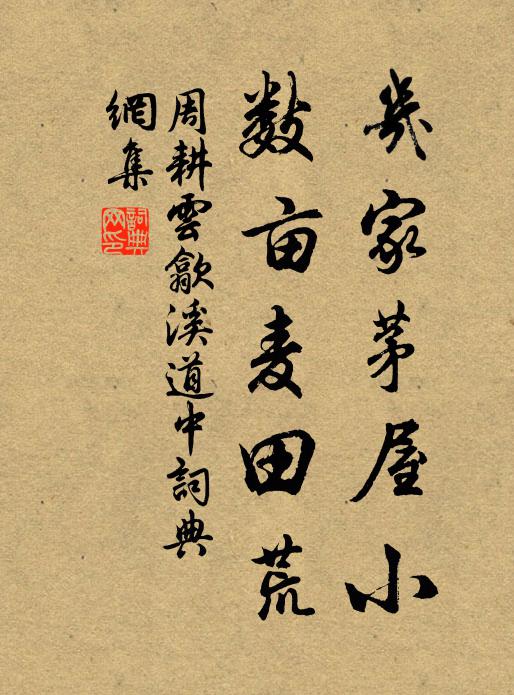 幾家茅屋小
数亩麦田荒
周耕雲歙溪道中詞典
網集
詞典
网印